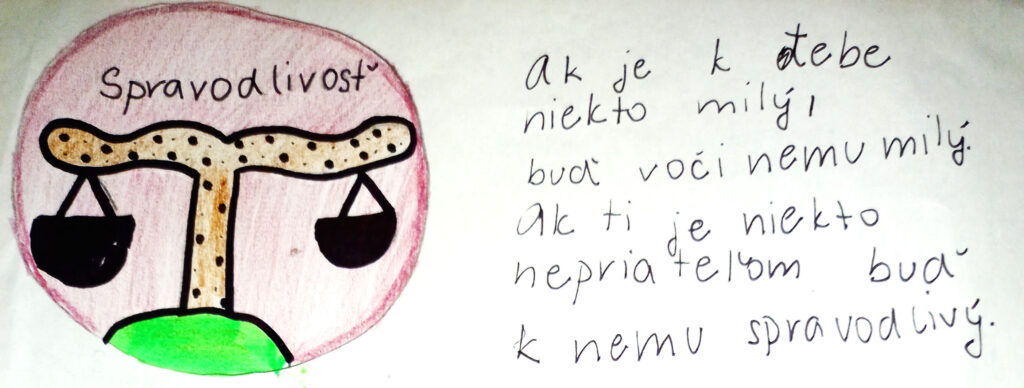 Spravodlivosť
ak je k tebe
niekto milý,
buď voči nemu milý.
ak ti je niekto
nepriateľom buď
k nemu spravodlivý.